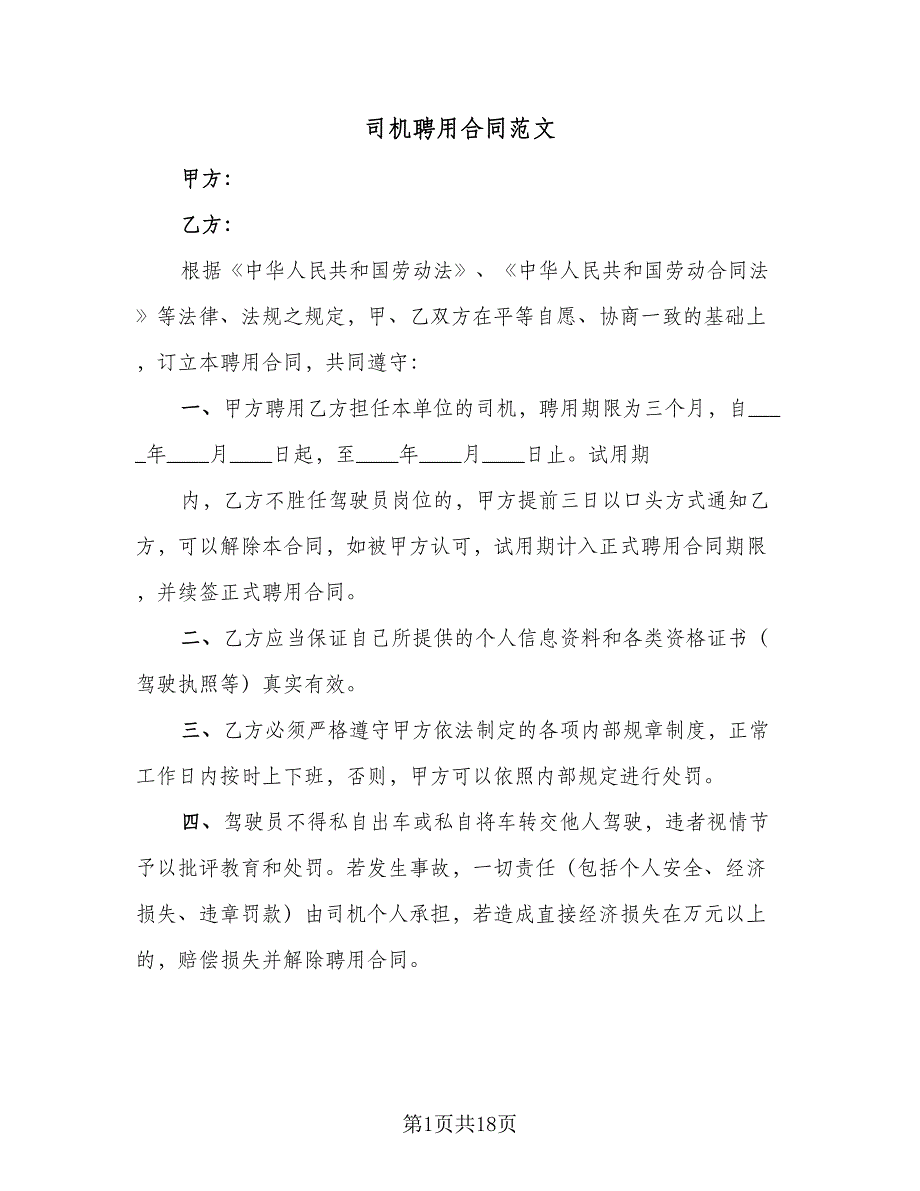 司机聘用合同范文
甲方：
乙方：
根据《中华人民共和国劳动法》、《中华人民共和国劳动合同法
》等法律、法规之规定，甲、乙双方在平等自愿、协商一致的基础上
，订立本聘用合同，共同遵守：
一、甲方聘用乙方担任本单位的司机，聘用期限为三个月，自___
_年____月____日起，至____年____月____日止。试用期
内，乙方不胜任驾驶员岗位的，甲方提前三日以口头方式通知乙
方，可以解除本合同，如被甲方认可，试用期计入正式聘用合同期限
，并续签正式聘用合同。
二、乙方应当保证自己所提供的个人信息资料和各类资格证书（
驾驶执照等）真实有效。
三、乙方必须严格遵守甲方依法制定的各项内部规章制度，正常
工作日内按时上下班，否则，甲方可以依照内部规定进行处罚。
四、驾驶员不得私自出车或私自将车转交他人驾驶，违者视情节
予以批评教育和处罚。若发生事故，一切责任（包括个人安全、经济
损失、违章罚款）由司机个人承担，若造成直接经济损失在万元以上
的，赔偿损失并解除聘用合同。
第1页共18页